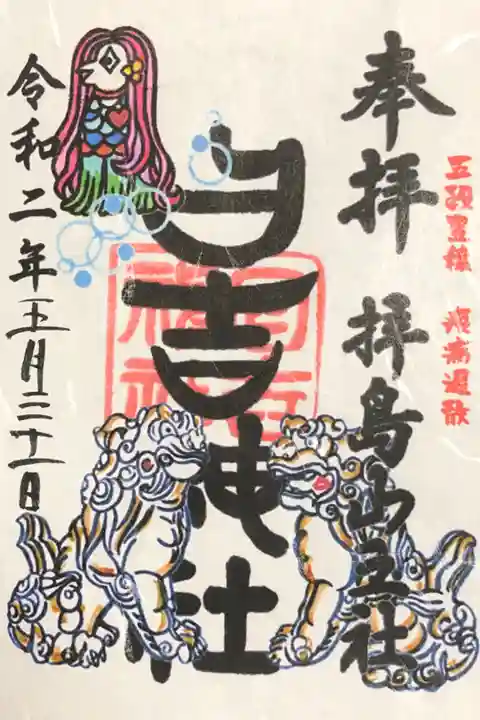 五穀豊穣 疫病退散
奉拝 拝島山王社
日吉神社
令和二年五月三十一日